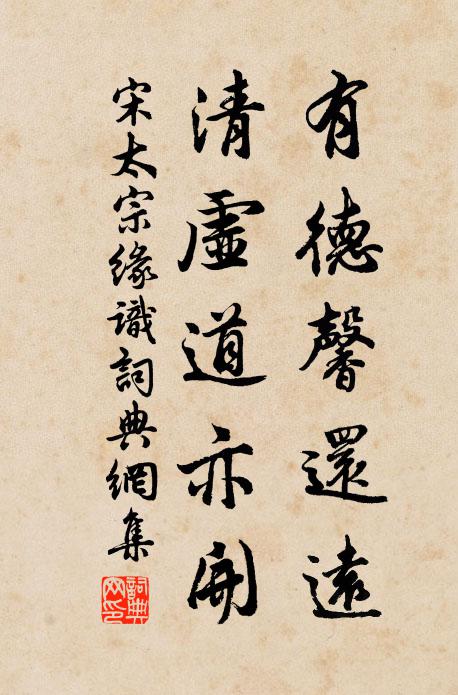 有德馨還遠
清虛道亦開
宋太宗緣識詞典網集
詞典網印